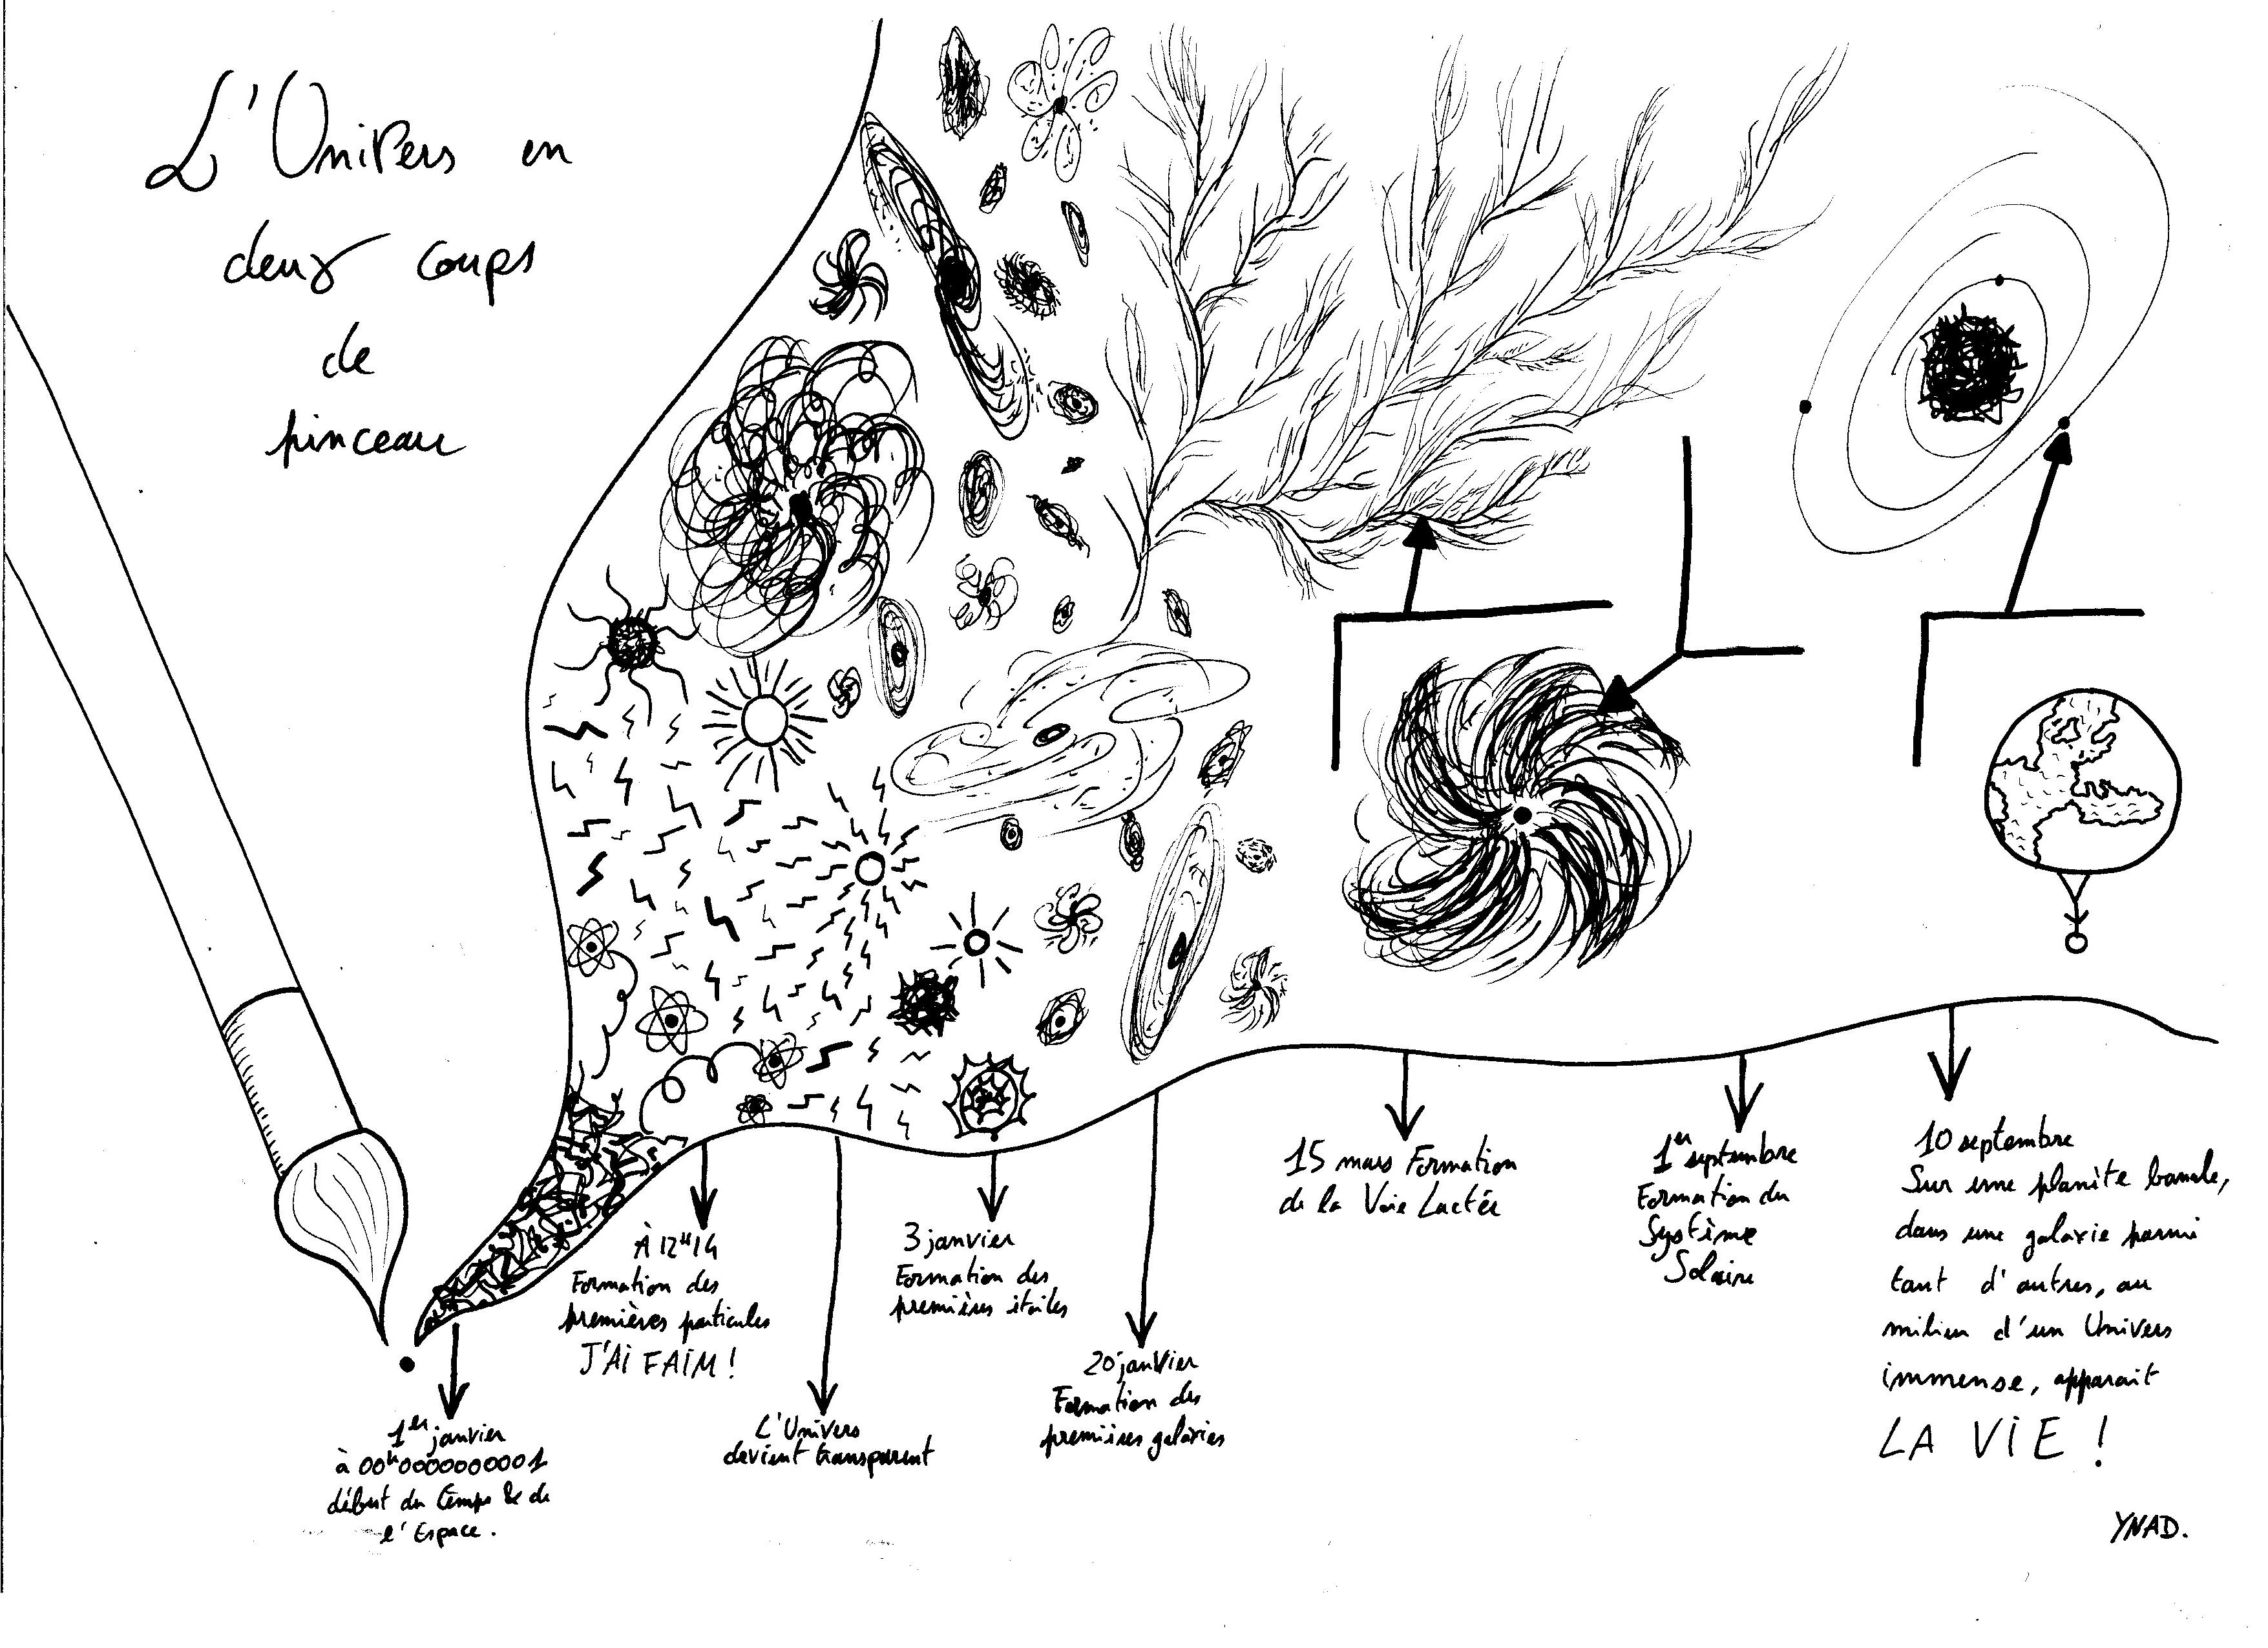 L'Univers en
deux coups
de
pinceau
1er janvier
à 00h00000000001
début du temps & de
l'Espace.
À 12H14
Formation des
premières particules
J'AI FAIM !
L'Univers
devient transparent
3 janvier
Formation des
premières étoiles
20 janvier
Formation des
premières galaxies
15 mars Formation
de la Voie Lactée
1er septembre
Formation du
Système
Solaire
10 septembre
Sur une planète banale,
dans une galaxie parmi
tant d'autres, au
milieu d'un Univers
immense, apparait
LA VIE !
YNAD.